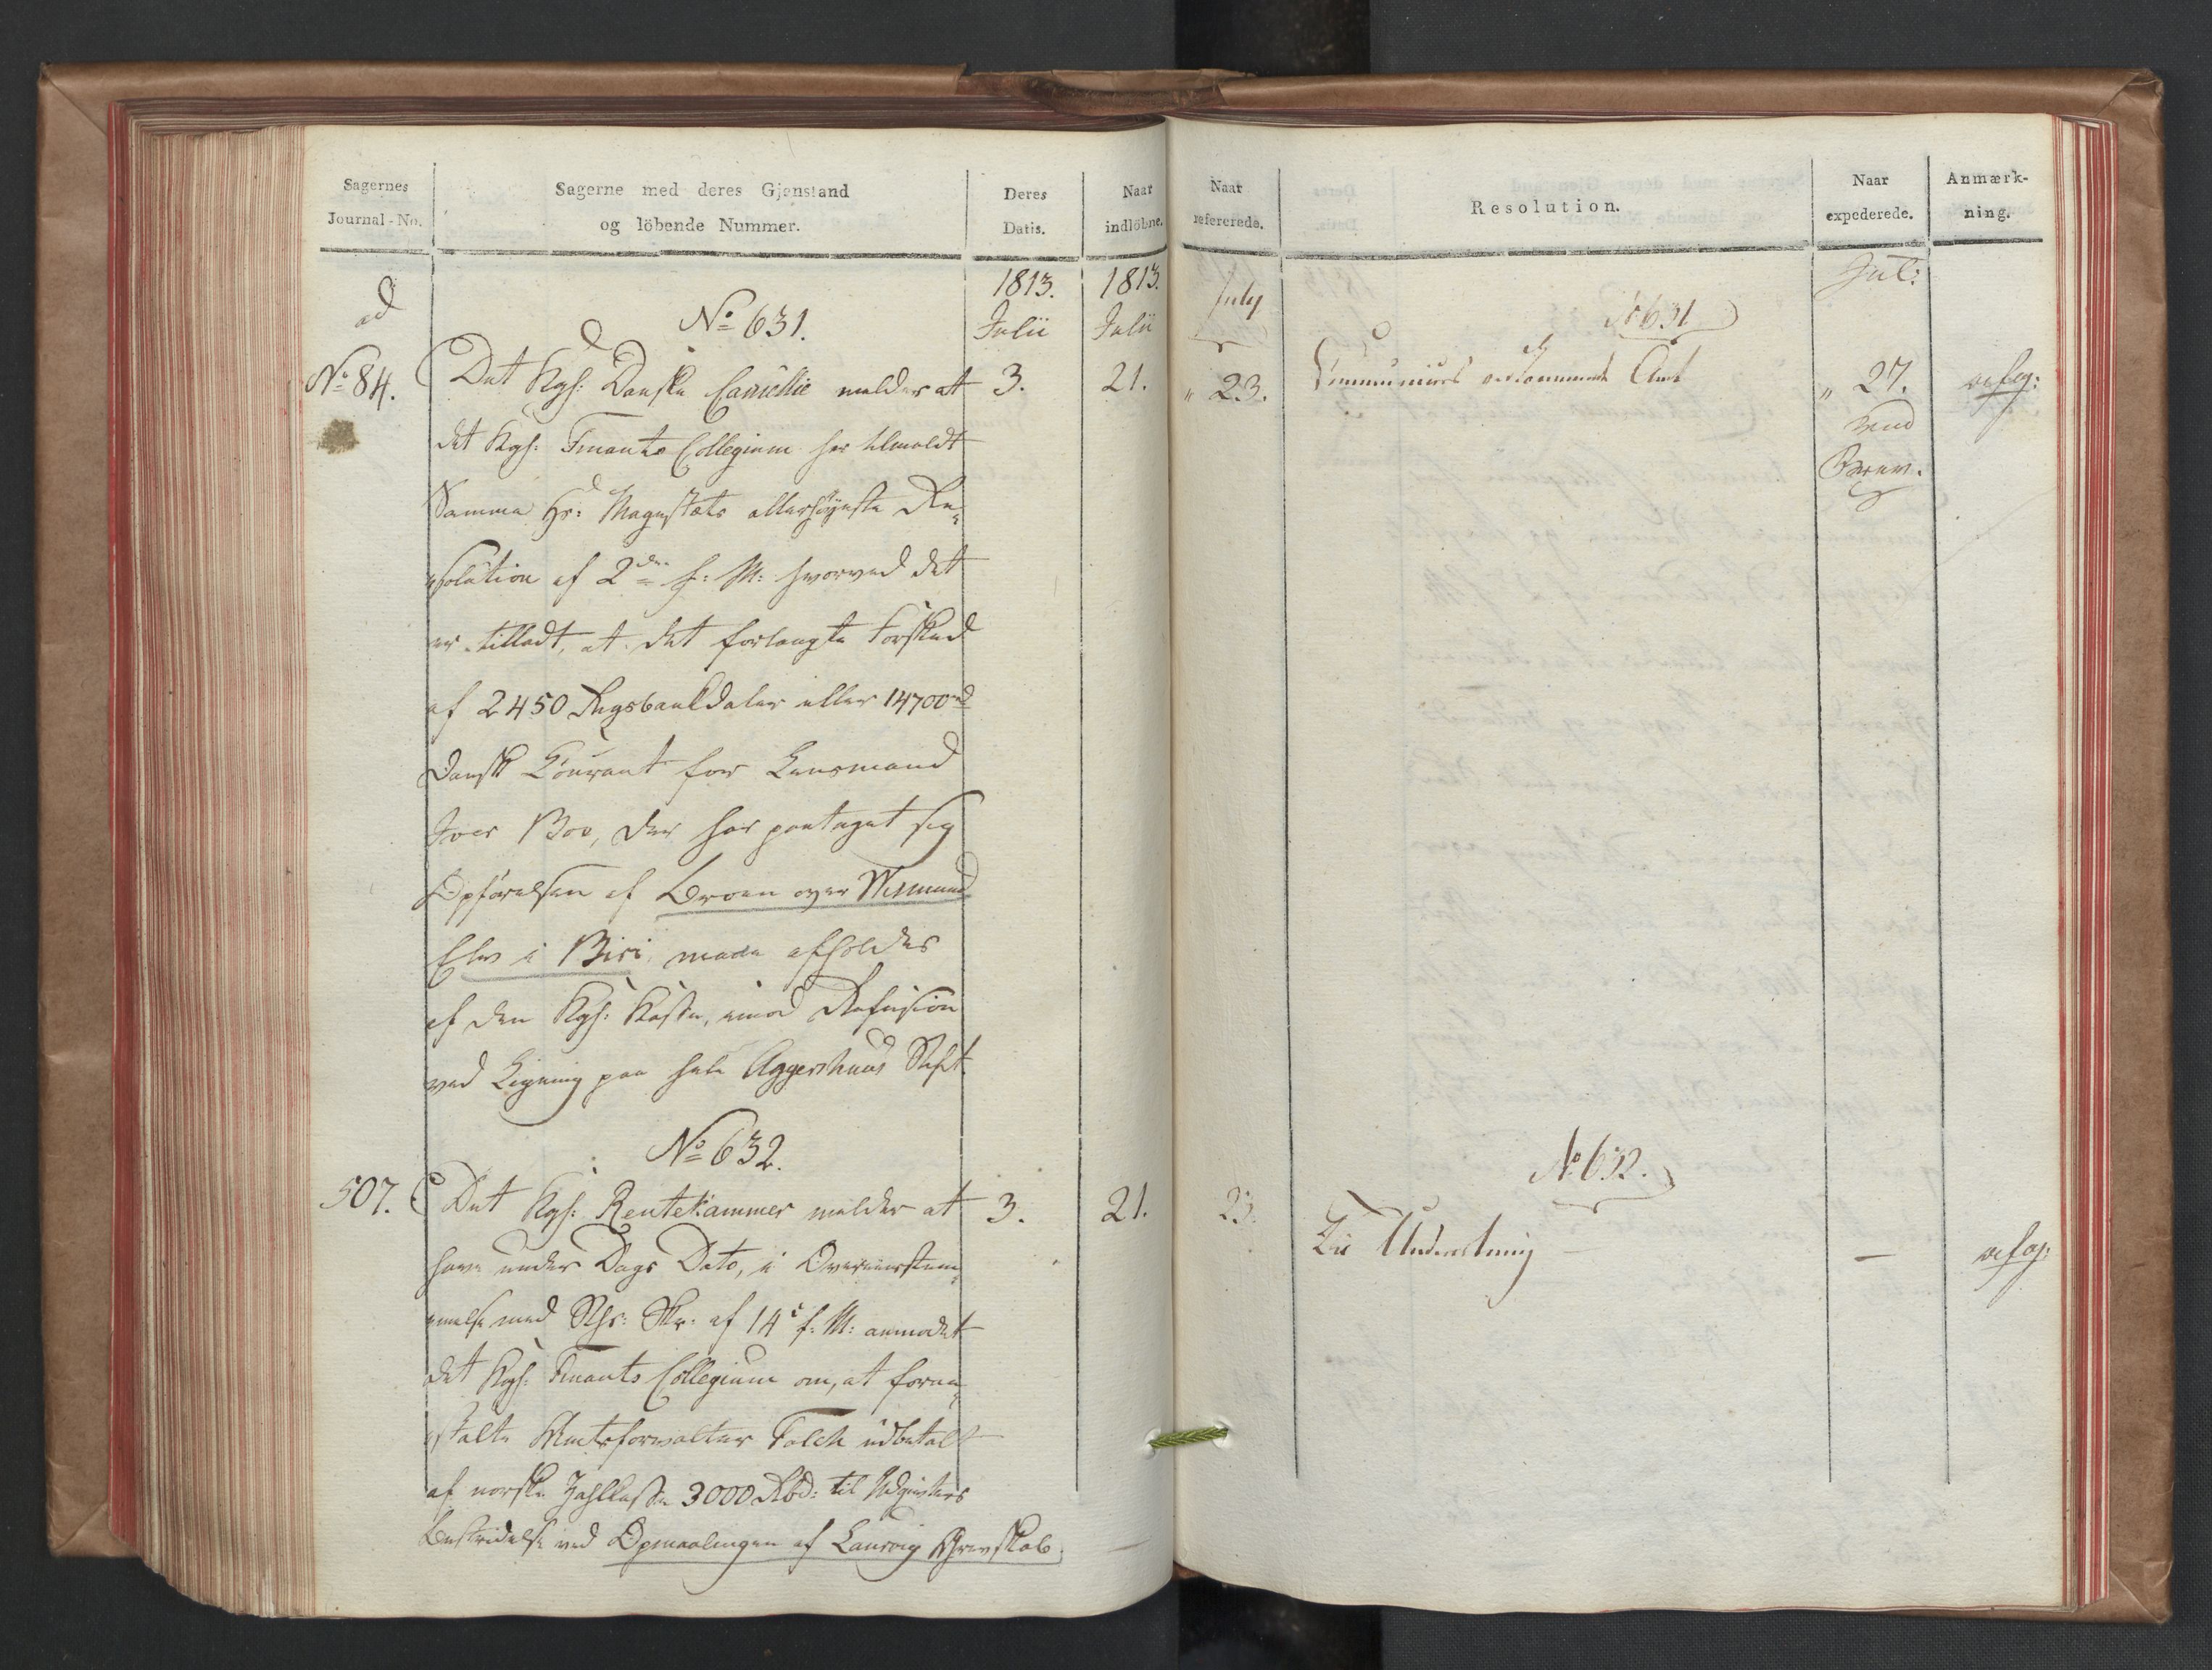 Sagernes
Journal-No.
Sagerne med deres Gjenstand
og löbende Nummer.
Deres
Datis.
Naar
indlöbne.
ad
No 84.
1813.
Julii
1813.
Julii
No 631.
Det Kgl: Danske Cancellie melder at
3.
21.
det Kgl: Finants Collegium har tilmeldt
Samme Hs: Majestæts allerhöyeste Re-
solution af 2den f: M: hvorved det
er tilladt, at det forlangte Forskud
af 2450 Rigsbankdaler eller 14700rd
Dansk Courant for Lensmand
Iver Boe, der har paataget sig
Opförelsen af Broen over Wismund
Elv i Biri, maae afholdes
af den Kgl: Kasse, imod Refusion
ved Ligning paa hele Aggershuus Stift.
No 632.
507.
Det Kgl: Rentekammer melder at
3.
21.
have under Dags Dato, i Overeenstem-
melse med Skr: af 14de f: M: anmodet
det Kgl: Finants Collegium om, at foran-
stalte Amtsforvalter Falch udbetalt
af norske Zahlkasse 3000 Rbd: til Udgifters
Bestridelse ved Opmaalingen af Laurvig Grevskab.
Naar
refererede.
Resolution.
Naar
expederede.
Anmærk-
ning.
July
Jul:
No 631.
" 23.
Communiceres vedkommende Amt
" 27.
ved
No 632.
23.
Til Underretning
—